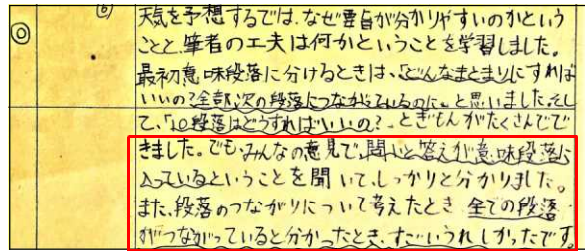 ◎ ⑥ 天気を予想するでは、なぜ要旨が分かりやすいのかという
ことと、筆者の工夫は何かということを学習しました。
最初意味段落に分けるときは、「どんなまとまりにすれば
いいの?全部次の段落につながっているのに。」と思いました。そし
て、「10段落はどうすればいいの?」とぎもんがたくさんでで
きました。でも、みんなの意見で、問いと答えが意味段落に
入っているということを聞いて、しっかりと分かりました。
また、段落のつながりについて考えたとき、全ての段落
がつながっていると分かったとき、すごいうれしかったです